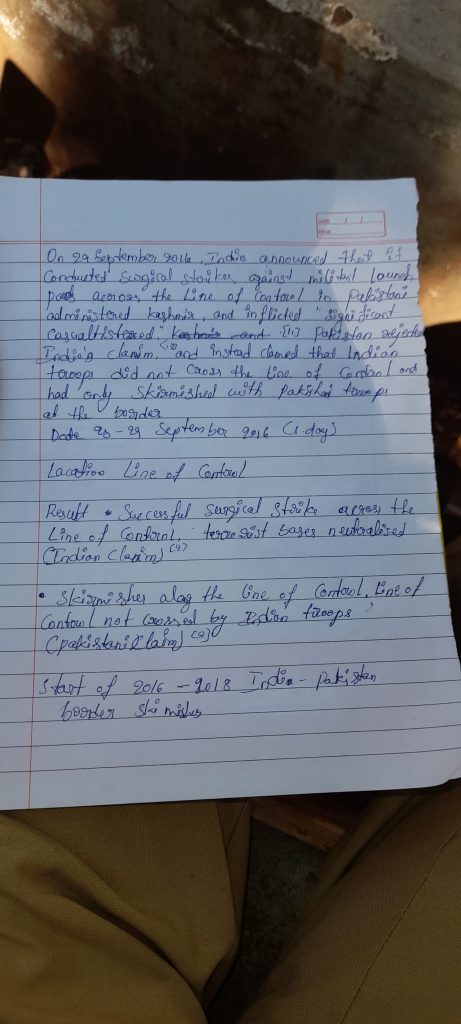 DATE / /
PAGE
On 29 September 2016, India announced that it
Conducted Surgical strikes against militant launch
pads across the Line of Control in Pakistani
administered kashmir, and inflicted "Significant
Casualtistered" kashmir and [11] Pakistan rejected
India's claim, and instead clamed that Indian
troops did not Cross the Line of Control and
had only Skirmished with Pakistani troops
at the border
Date 28 - 29 September 2016 (1 day)
Location Line of Control
Result • Successful Surgical Strike across the
Line of Control, terrorist bases neutralised
(Indian Claim) [2]
• Skirmishes along the Line of Control. Line of
Control not crossed by Indian troops
(pakistani Claim) [2]
Start of 2016 - 2018 India - pakistan
border Skimishes